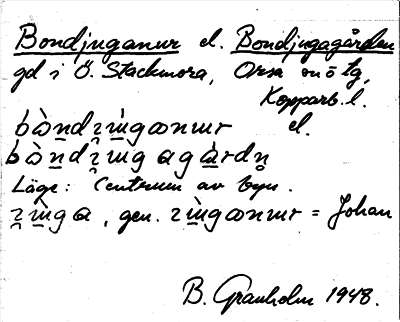 Bondjuganur el. Bondjugagården
gd i Ö. Stackmora, Orsa snö tg,
Kopparb. l.
bòndɀùganur el.
bòndɀùg agàrdn̥
Läge: Centrum av byn.
ɀùga, gen. ɀùganur = Johan
B. Granholm 1948.